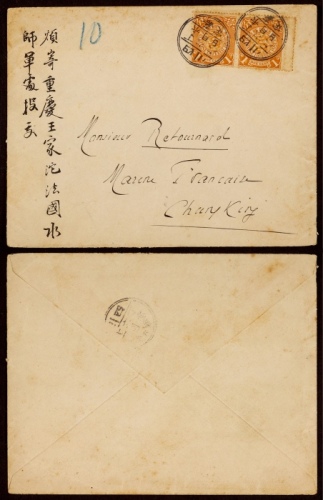 煩寄重慶王家沱法國水
師軍處投交
10
Monsieur Retournard
Marine Francaise
Chung King